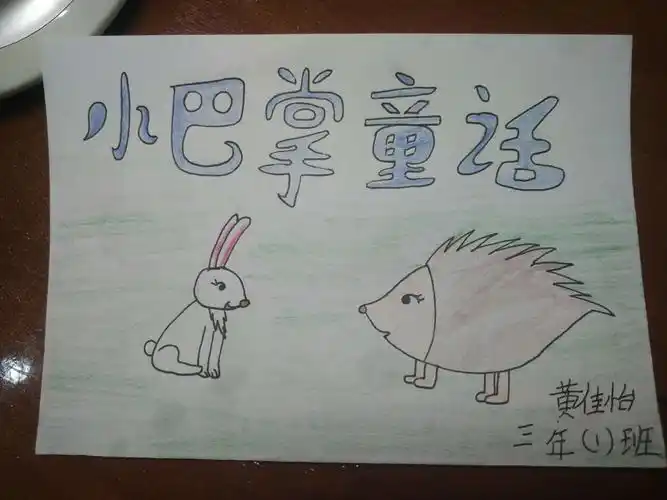 小巴掌童话
黄佳怡
三年(1)班